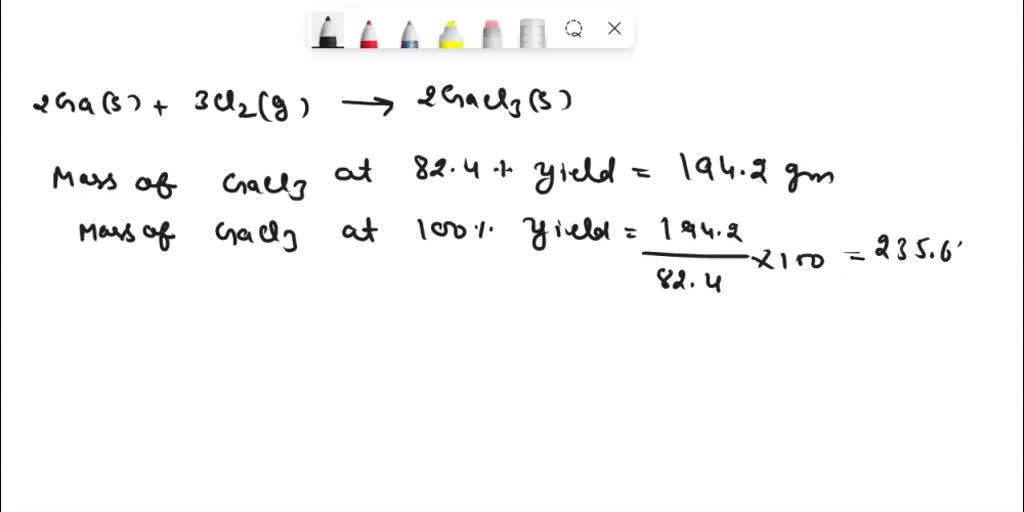 2Ga(s) + 3Cl2(g) → 2GaCl3(s)
Mass of GaCl3 at 82.4% yield = 194.2 gm
Mass of GaCl3 at 100% yield = 194.2 / 82.4 × 100 = 235.6